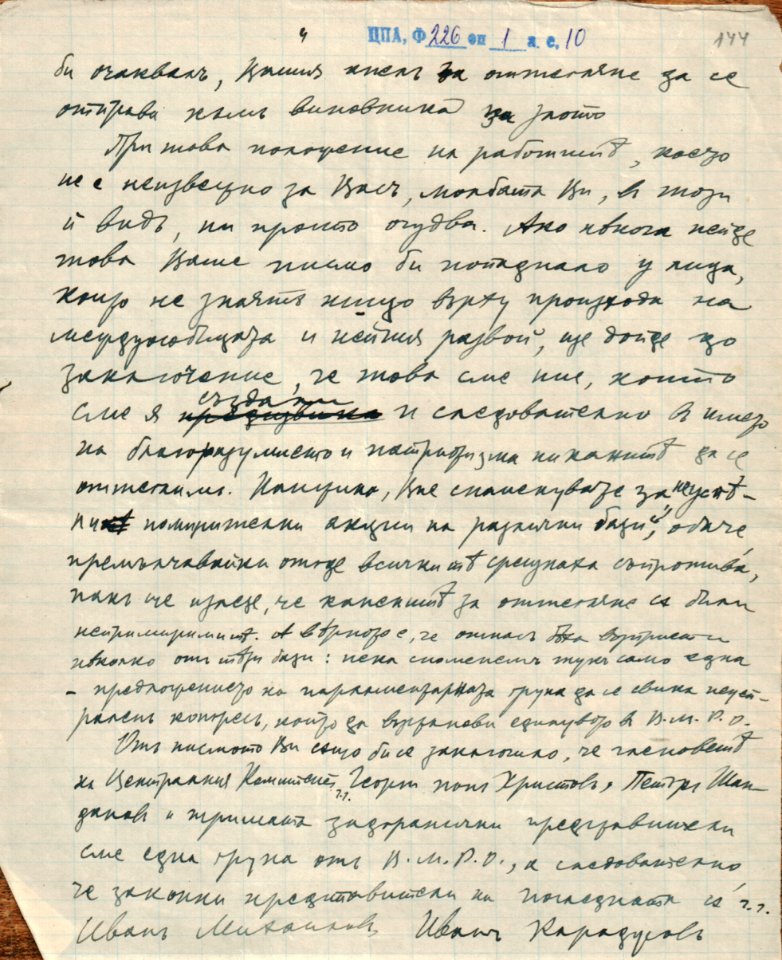 4
ЦПА, Ф 226 оп 1 а. е. 10
144
би очаквалъ, Вашия апелъ за оттегляне да се
отправи къмъ виновника за злото
При това положение на работитѣ, което
не е неизвестно за Васъ, молбата Ви, въ този
ѝ видъ, ни просто очудва. Ако нѣкога нейде
това Ваше писмо би попаднало у лица,
които не знаятъ нищо върху произхода на
междуособицата и нейния развой, ще дойде до
заключение, че това сме ние, които
създали
сме я предизвикали и следователно въ името
на благоразумието и патриотизма ни канятъ да се
оттеглимъ. Наистина, Вие споменувате за "неуспѣ-
ли помирителни акции на различни бази", обаче,
премълчавайки отгде всичкитѣ срещнаха съпротива,
пакъ ще излезе, че каненитѣ за оттегляне са били
непримиримитѣ. А вѣрното е, че отпасъ бѣха възприети
нѣколко отъ тѣзи бази: нека споменемъ тукъ само една
- предложението на парламентарната група да се свика неут-
раленъ конгресъ, който да възстанови единството въ В.М.Р.О.
Отъ писмото Ви също би се заключило, че членоветѣ
на Централния Комитетъ, г.г. Георги попъ Христовъ, Петъръ Шан-
дановъ и тримата задгранични представители
сме една група отъ В.М.Р.О., а следователно
че законни представители на последната са г.г.
Иванъ Михайловъ, Иванъ Караджовъ